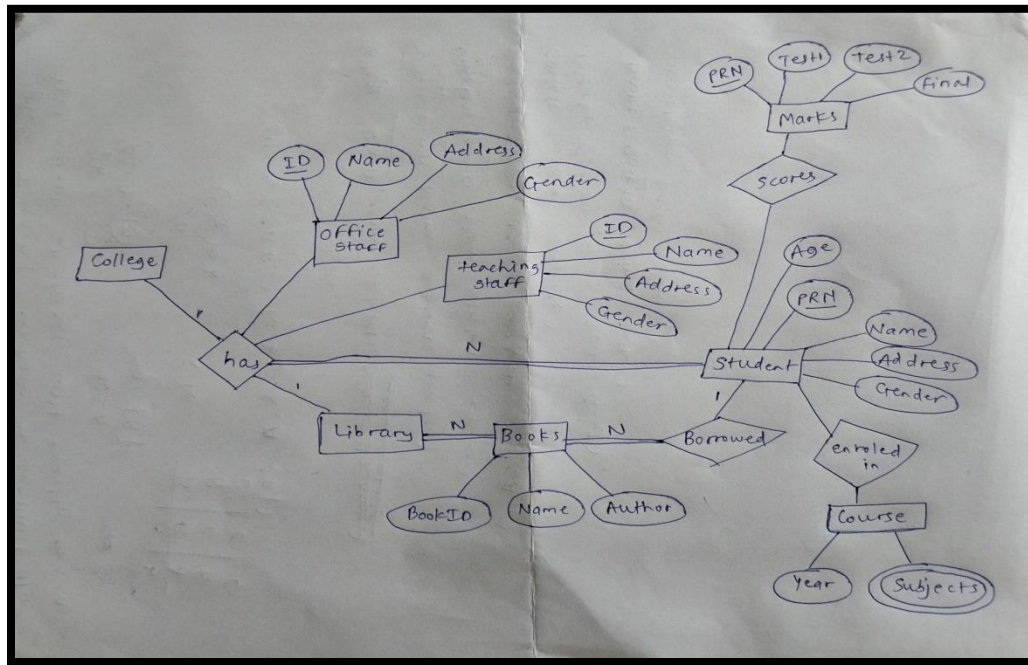 PRN
Test1
Test2
Final
Marks
Scores
ID
Name
Address
Gender
office
staff
College
teaching
staff
ID
Name
Address
Gender
Age
PRN
Name
Address
Gender
Student
1
has
N
1
Library
N
Books
N
Borrowed
1
enroled
in
BookID
Name
Author
Course
Year
Subjects